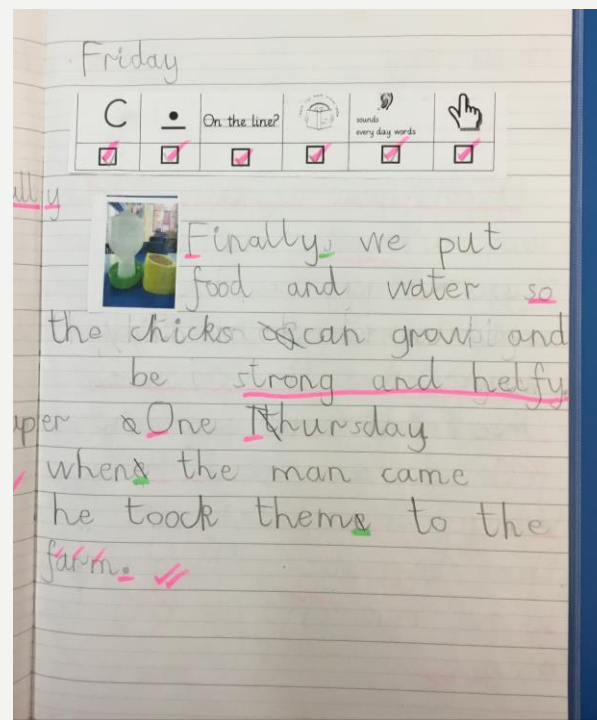 Friday
C On the line? sounds
every day words
ally
Finally, we put
food and water so
the chicks can grow and
be strong and helfy.
uper One Thursday
when the man came
he toock them to the
farm.